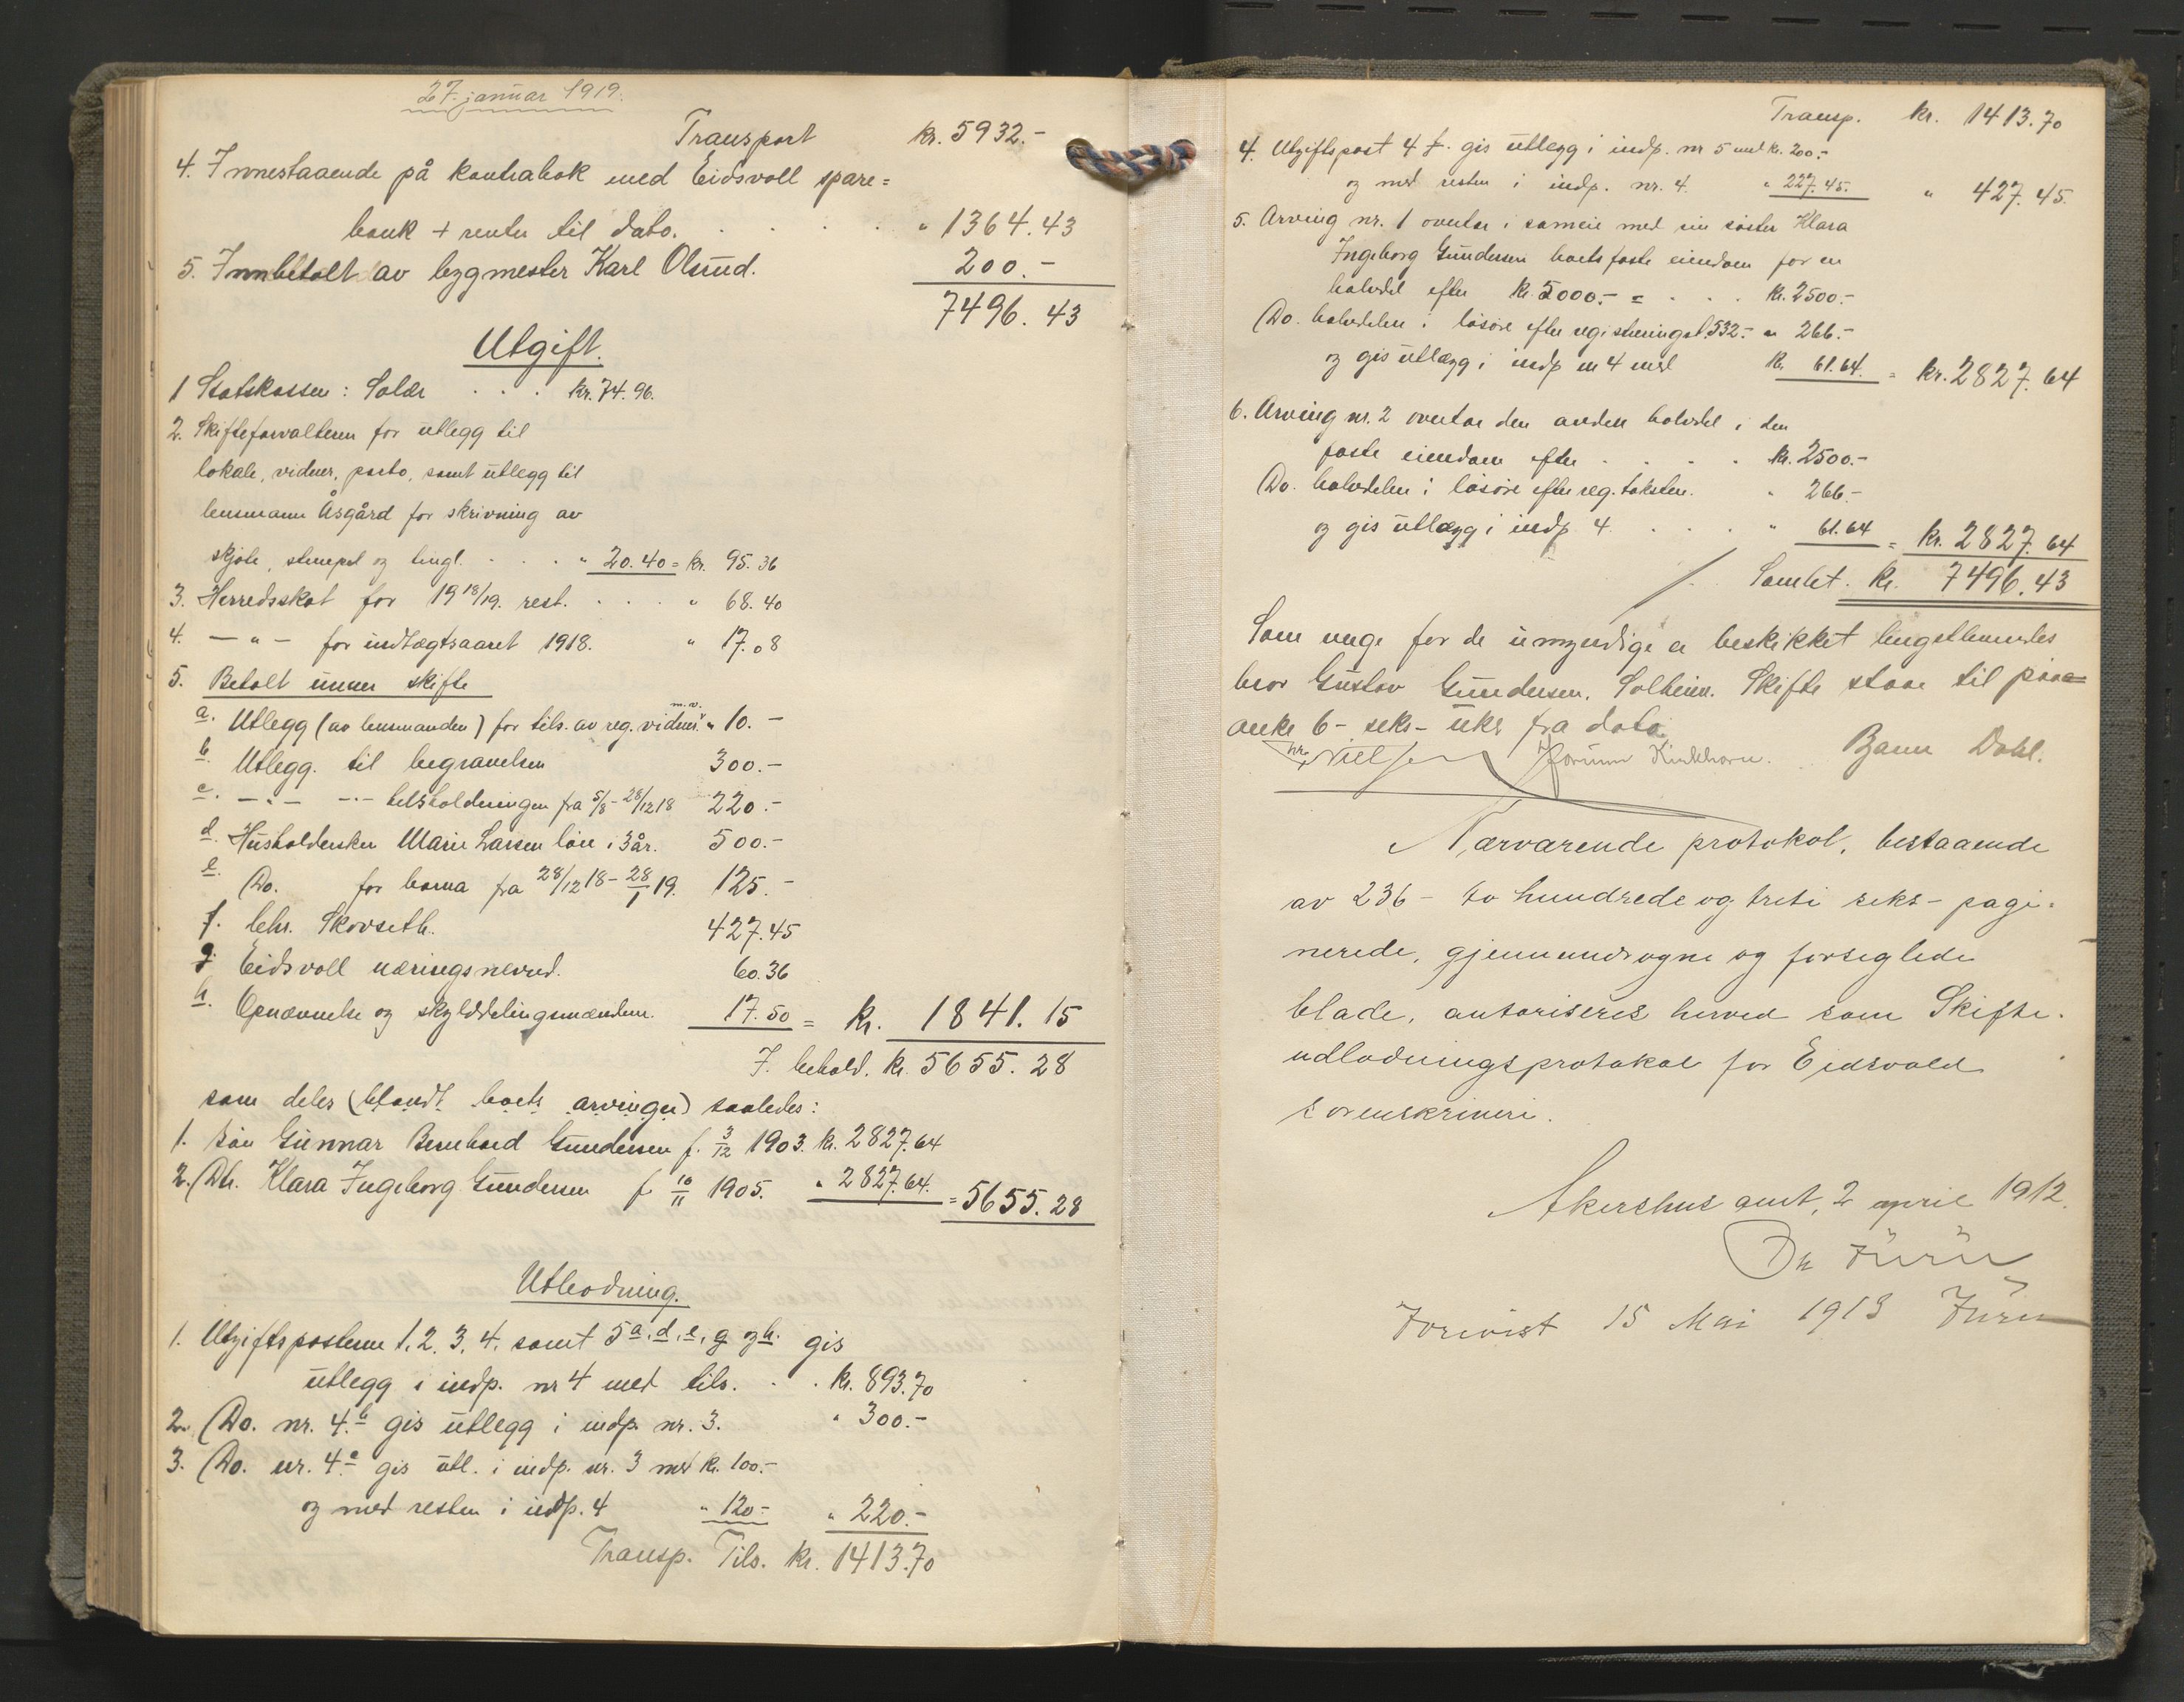 27. januar 1919.
Transport kr. 5932.-
4. Innestaaende på kontrabok med Eidsvoll spare=
bank + renter til dato. . . . . " 1364.43
5. Innbetalt av bygmester Karl Olsrud. 200.-
7496.43
Utgift.
1 Statskassen: Salær . . . kr. 74.96.
2. Skifteforvalteren for utlegg til
lokale, vidner, porto, samt utlegg til
lensmann Åsgård for skrivning av
skjøte, stempel og tingl. . . . " 20.40 = kr. 95.36
3. Herredsskat for 1918/19. rest. . . . " 68.40
4. — " — for indtægtsaaret 1918. " 17.08
5. Betalt under skifte
a. Utlegg (av lensmanden) for tils. av reg. vidner m.v. " 10.-
b. Utlegg. til begravelsen 300.-
c. — " — — " — husholdningen fra 5/8 - 28/12 18 220.-
d. Husholdersken Marie Larsen løn i 3 år. 500.-
e. Do. for barna fra 28/12 18 - 28/1 19. 125.-
f. Chr. Skovseth. 427.45
g. Eidsvoll næringsnevnd. 60.36
h. Opnævnelse og skylddelingsmændene. 17.50 = kr. 1841.15
I behold. kr. 5655.28
som deles (blandt boets arvinger) saaledes:
1. Søn Gunnar Bernhard Gundersen f. 3/12 1903. kr. 2827.64
2. Dtr. Klara Ingeborg Gundersen f. 10/11 1905. " 2827.64. = 5655.28
Utlodning.
1. Utgiftspostene 1. 2. 3. 4. samt 5 a. d. e. g og h. gis
utlegg i indp. nr 4 med tils. . . kr. 893.70
2. Do. nr. 4 b gis utlegg i indp. nr. 3. " 300.-
3. Do. nr. 4 c gis utl. i indp. nr. 3 med kr. 100.-
og med resten i indp. 4 " 120.- " 220.-
Transp. Tils. kr. 1413.70
Transp. kr. 1413.70
4. Utgiftspost 4 f. gis utlegg i indp. nr 5 med kr. 200.-
og med resten i indp. nr. 4. " 227.45. " 427.45.
5. Arving nr. 1 overtar i sameie med sin søster Klara
Ingeborg Gundersen boets faste eiendom for en
halvdel efter kr. 5000.- = . . . kr. 2500.-
Do. halvdelen i løsøre efter registreringst. 532.- " 266.-
og gis utlægg i indp nr 4 med kr. 61.64. = kr. 2827.64
6. Arving nr. 2 overtar den anden halvdel i den
faste eiendom efter . . . . kr. 2500.-
Do. halvdelen i løsøre efter reg. taksten. " 266.-
og gis utlægg i indp 4. . . . " 61.64 = kr. 2827.64
Samlet. kr. 7496.43
Som verge for de umyndige er beskikket lengstlevendes
bror Gustav Gundersen, Solheim. Skifte staar til paa=
anke 6 - seks - uker fra dato.
Nielsen Jørunn Kinkhorn. Dahl.
Nærværende protokol, bestaaende
av 236 - to hundrede og treti seks - pagi-
nerede, gjennemdragne og forseglede
blade, autoriseres herved som Skifte-
udlodningsprotokol for Eidsvold
sorenskriveri.
Akershus amt, 2 april 1912.
Forevist 15 Mai 1913